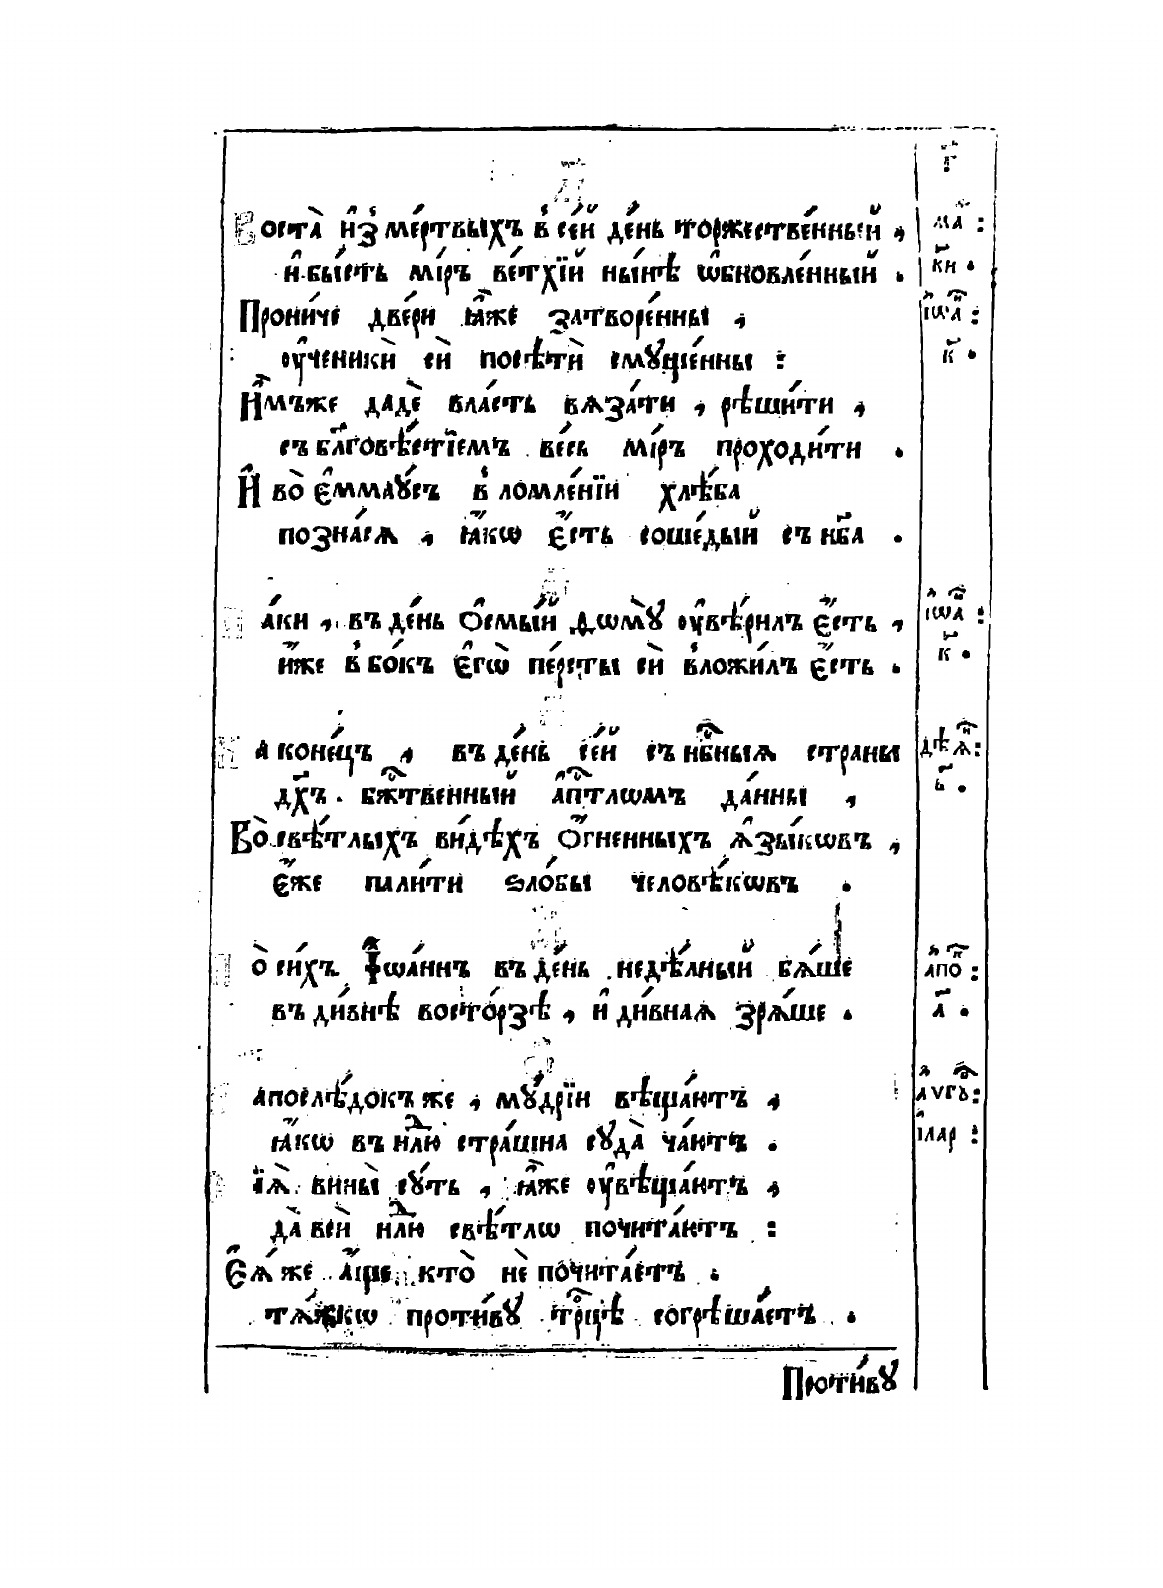 Воста̀ и҆з̾ ме́ртвыхъ в̾ се́й де́нь торжестве́нный ,
и҆ бы́сть мі́ръ ве́тхїй ны́нѣ ѡ҆бновле́нный .
Прони́че две́ри ꙗ҆̀же затворе́нны ,
ᲂу҆ченикѝ сѝ посѣтѝ смꙋще́нны :
И҆̀мъже дадѐ вла́сть вѧза́ти , рѣши́ти ,
съ бл҃говѣ́стїемъ ве́сь мі́ръ проходи́ти .
И҆ во̀ є҆ммаꙋ́съ в̾ ломле́нїи хлѣ́ба
позна́сѧ , ꙗ҆́кѡ є҆́сть соше́дый съ нб҃а .
Па́ки , въ де́нь ѻ҆смы́й Ѳѡмꙋ̀ ᲂу҆вѣ́рилъ є҆́сть ,
и҆́же в̾ бо́къ є҆гѡ̀ пе́рсты сѝ в̾ложи́лъ є҆́сть .
Наконе́цъ , въ де́нь се́й съ нбⷭ҇ныѧ страны
дх҃ъ бжⷭ҇твенный а҆пⷭ҇тлѡмъ да́нны ,
Во̀ свѣ́тлыхъ ви́дѣхъ ѻ҆́гненныхъ ѧ҆зы́кѡвъ ,
є҆́же пали́ти ѕло́бы человѣ́кѡвъ .
По̀ си́хъ І҆ѡа́ннъ въ де́нь недѣ́лный бѧ́ше
въ ди́внѣ восто́рзѣ , и҆ ди́внаѧ зрѧ́ше .
Напослѣ́докъ же , мꙋ́дрїи вѣща́ютъ ,
ꙗ҆́кѡ въ нлⷣю стра́шна сꙋда̀ ча́ютъ .
Сїѧ̀ вины̀ сꙋ́ть , ꙗ҆̀же ᲂу҆вѣща́ютъ ,
да̀ всѝ нлⷣю свѣ́тлѡ почита́ютъ :
Є҆ѧ́ же а҆́ще кто̀ нѐ почита́етъ ,
тѧ́жкѡ проти́вꙋ трⷪ҇цѣ согрѣша́етъ .
Проти́вꙋ
г҃
ма :
ки .
і҆ѡаⷩ҇ :
к҃ .
і҆ѡаⷩ҇ :
к҃ .
дѣѧⷩ҇ :
в҃ .
а҆поⷦ҇ :
а҃ .
а҆ѵгꙋ :
і҆лар :